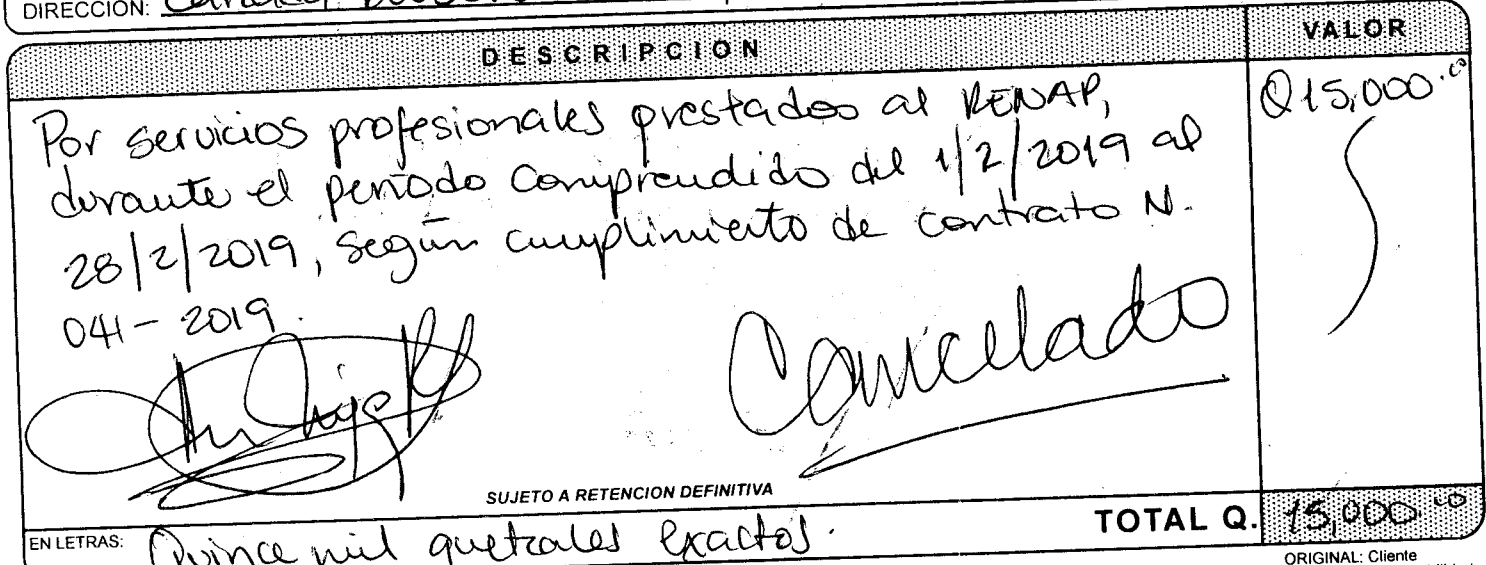 DIRECCIÓN:
DESCRIPCION VALOR
Por servicios profesionales prestados al RENAP, Q15,000.00
durante el período comprendido del 1/2/2019 al
28/2/2019, según cumplimiento de contrato N.
041-2019.
Cancelado
SUJETO A RETENCION DEFINITIVA
TOTAL Q. 15,000.00
EN LETRAS: Quince mil quetzales exactos.
ORIGINAL: Cliente